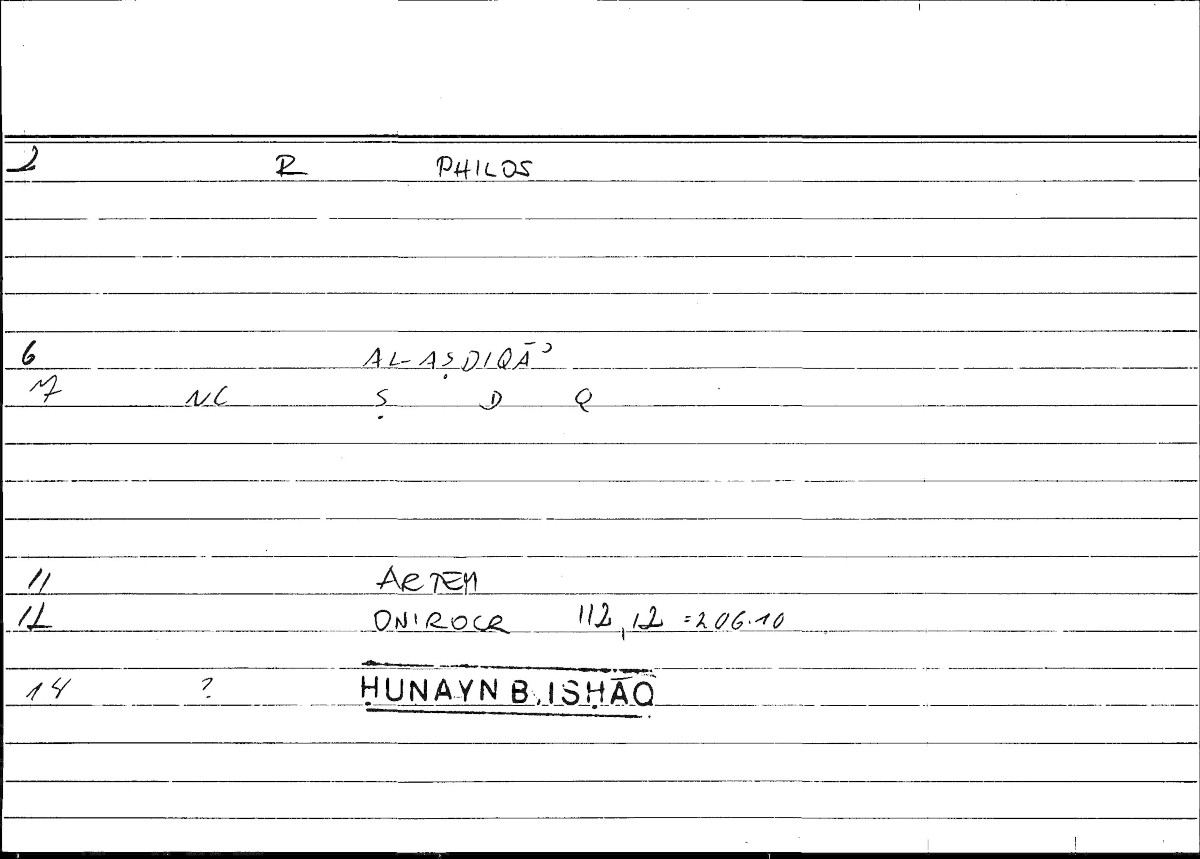 2 R PHILOS
6 AL-AṢDIQĀʾ
7 NC Ṣ D Q
11 ARTEM
12 ONIROCR 112,12 = 206.10
14 ? ḤUNAYN B. ISḤĀQ